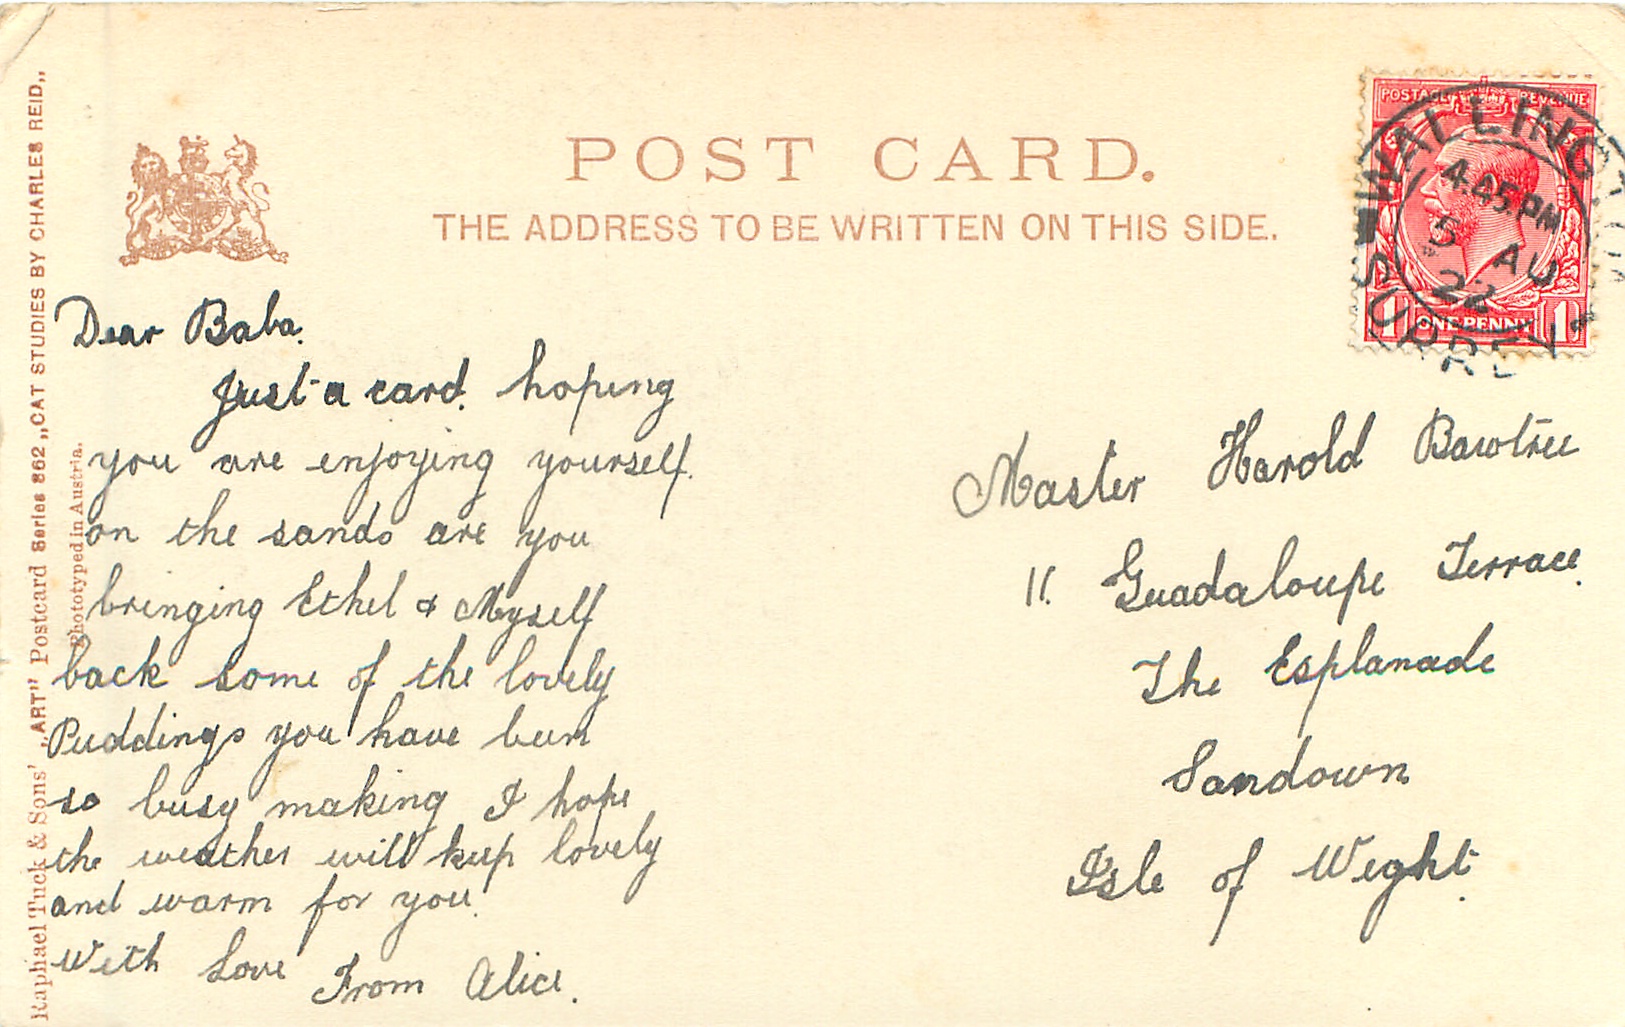 POST CARD.
THE ADDRESS TO BE WRITTEN ON THIS SIDE.
Raphael Tuck & Sons' „ART" Postcard Series 862 „CAT STUDIES BY CHARLES REID.„
Phototyped in Austria.
POSTAGE REVENUE
1 ONE PENNY 1
WALLINGTON
4.45 PM
5 AU
22
SURREY
Dear Baba.
Just a card. hoping
you are enjoying yourself.
on the sands are you
bringing Ethel & Myself
back some of the lovely
Puddings you have been
so busy making I hope
the weather will keep lovely
and warm for you.
With Love From Alice.
Master Harold Bawtree
11. Guadaloupe Terrace.
The Esplanade
Sandown
Isle of Wight.